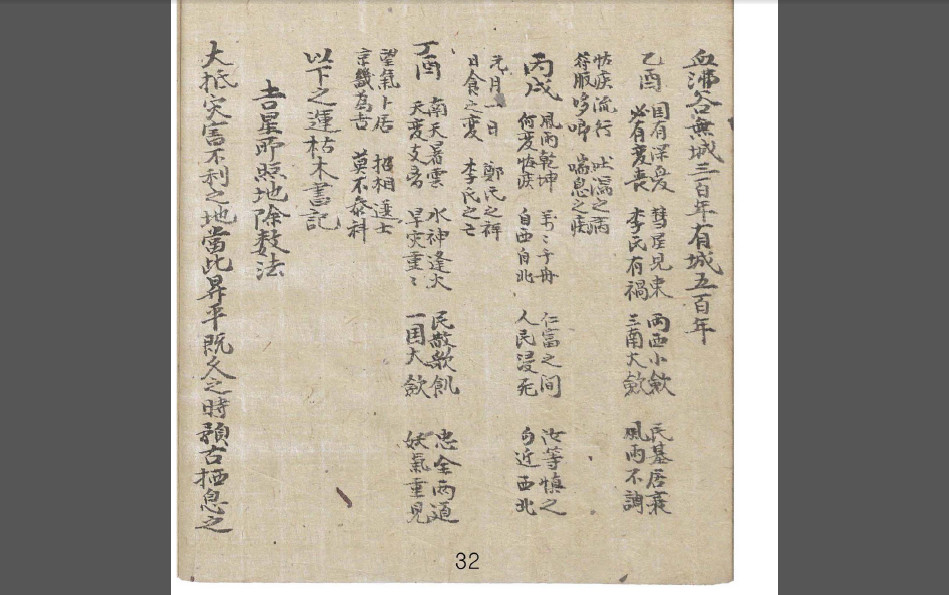 血沸谷無城三百年有城五百年
乙酉
国有深憂 彗星見東 兩西小歛 民墓居衰
必有変喪 李氏有禍 三南大歛 風雨不調
怪疾流行 吐瀉之病
符服 喘息之疾
丙戌
風雨乾坤 仁富之间 汝等慎之
何変恠疾 自西自北 人民浸死 勿近西北
元月一日 鄭氏之祥
日食之変 李氏之亡
丁酉
南天暑雲 水神逢火 民散歌飢 忠全両道
天変支离 旱灾重〻 一国大歛 妖氣重見
望氣卜居 招相逢士
京畿為吉 莫不泰科
以下之運枯木書記
吉星所照地除数法
大抵灾害不利之地當此昇平既久之時預占栖息之
32